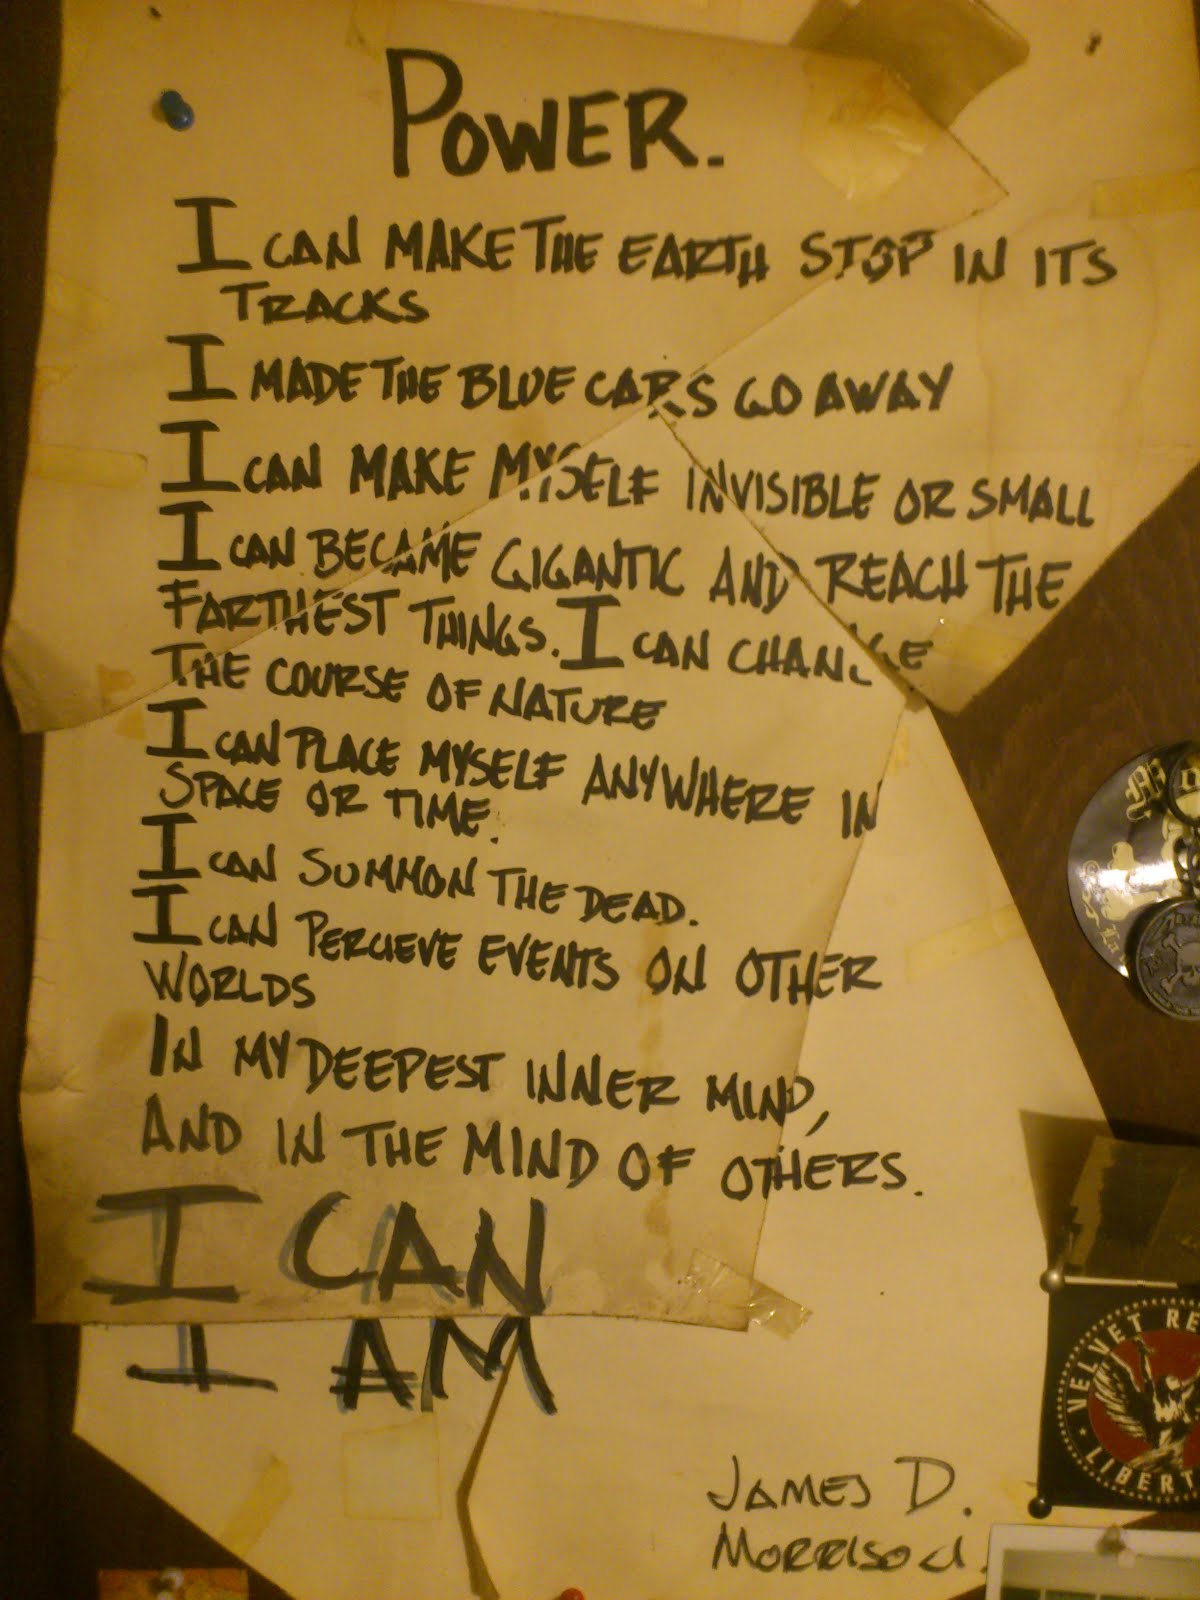 POWER.
I CAN MAKE THE EARTH STOP IN ITS
TRACKS
I MADE THE BLUE CARS GO AWAY
I CAN MAKE MYSELF INVISIBLE OR SMALL
I CAN BECAME GIGANTIC AND REACH THE
FARTHEST THINGS. I CAN CHANGE
THE COURSE OF NATURE
I CAN PLACE MYSELF ANYWHERE IN
SPACE OR TIME.
I CAN SUMMON THE DEAD.
I CAN PERCIEVE EVENTS ON OTHER
WORLDS
IN MY DEEPEST INNER MIND,
AND IN THE MIND OF OTHERS.
I CAN
I AM
JAMES D.
MORRISON
VELVET RE
LIBERT